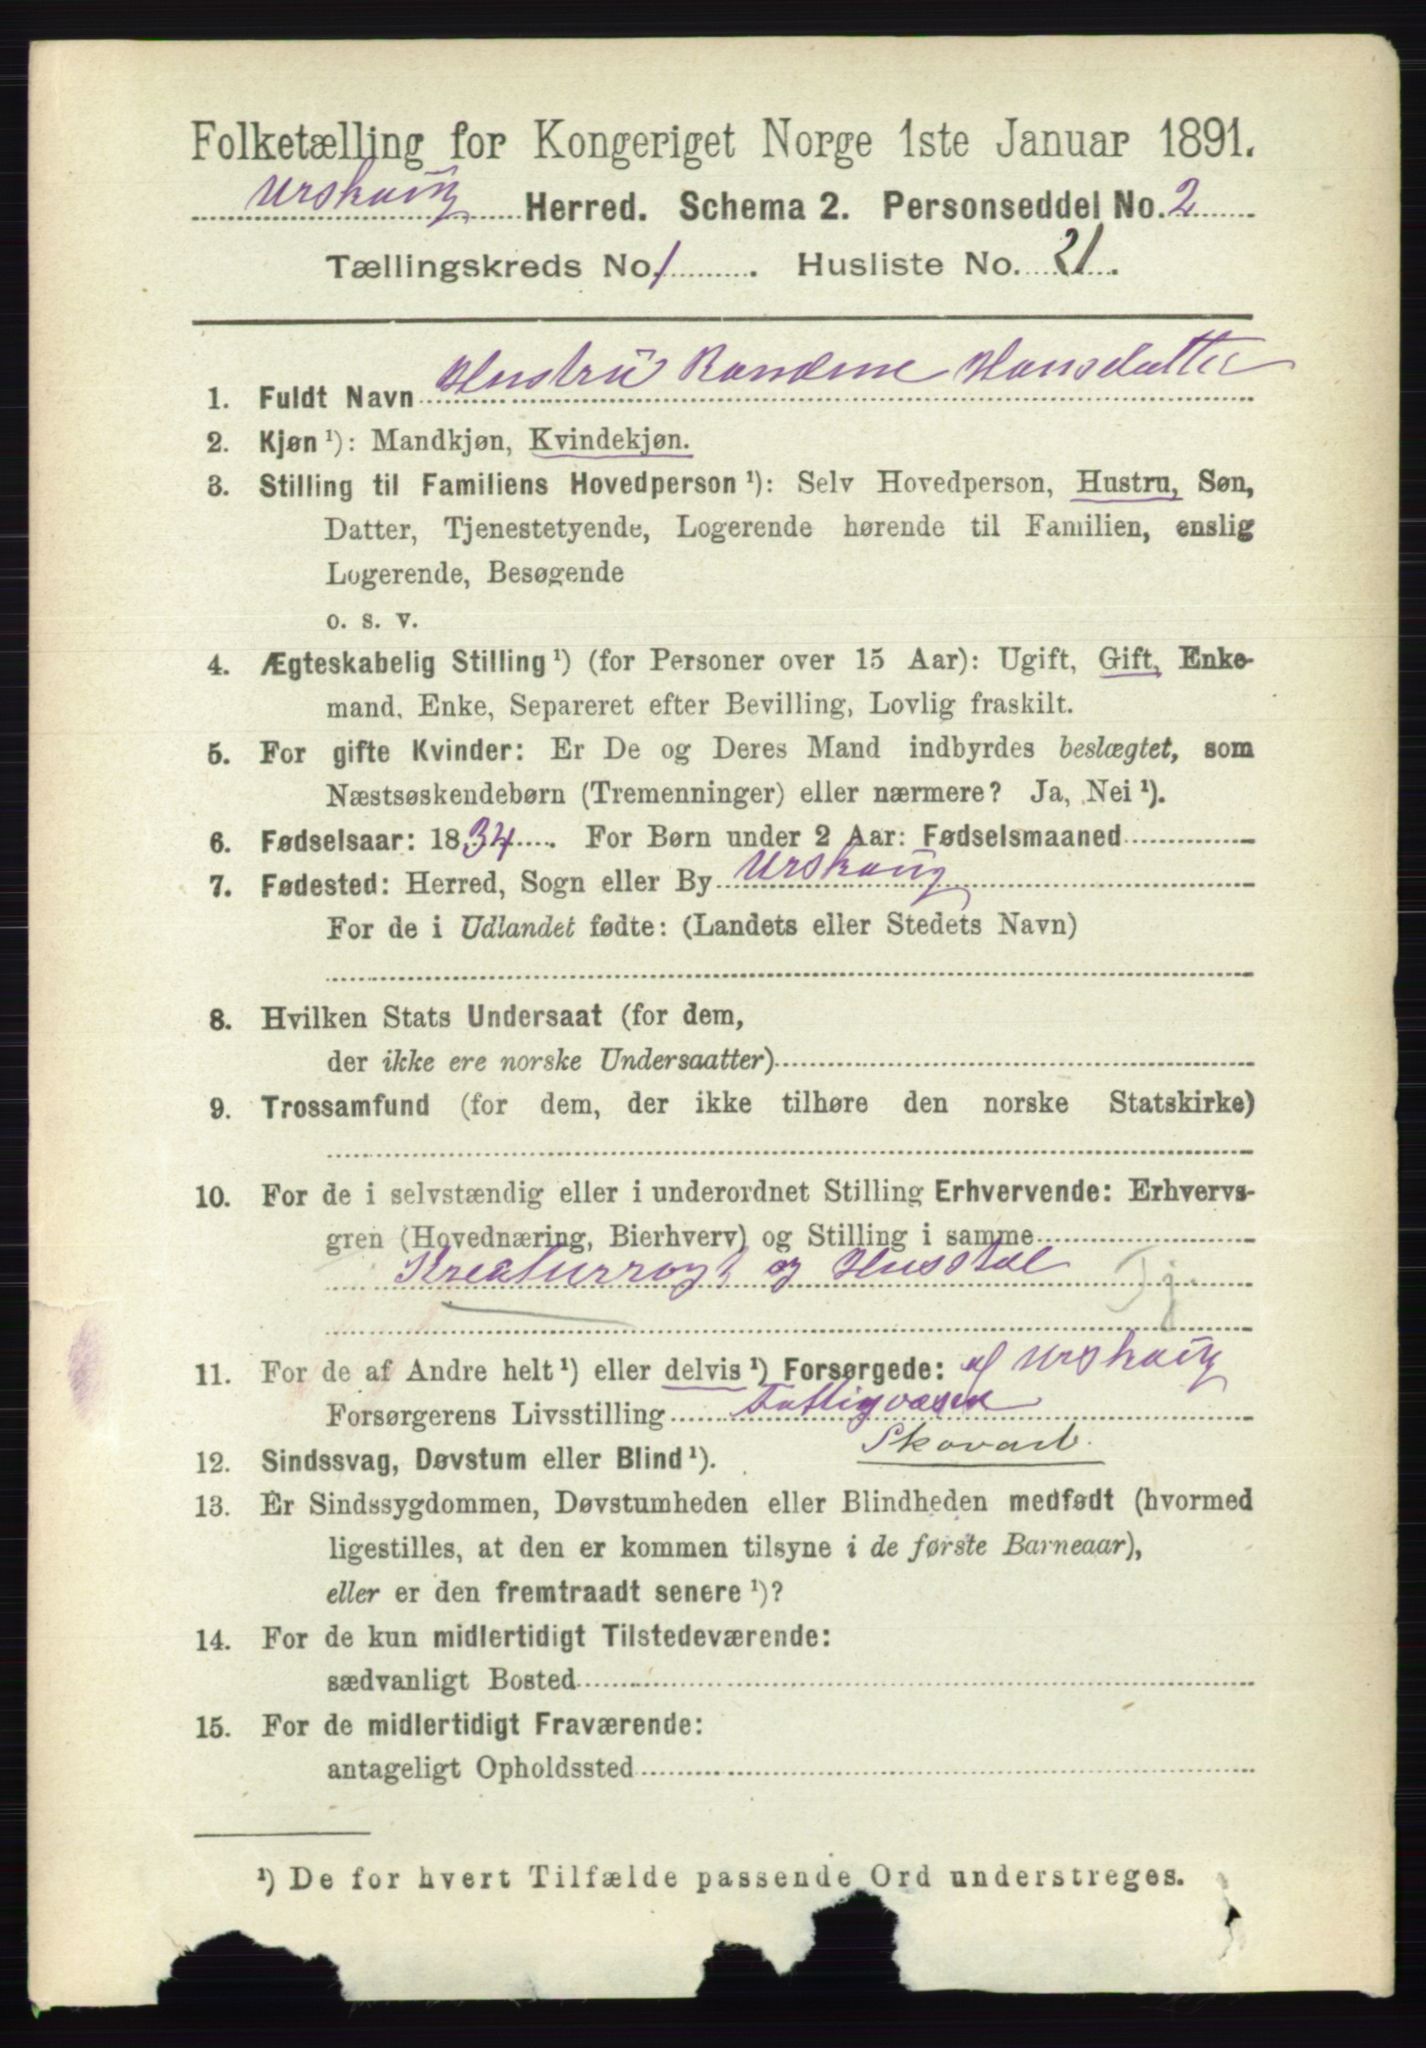 Folketælling for Kongeriget Norge 1ste Januar 1891.
Urskoug Herred. Schema 2. Personseddel No. 2
Tællingskreds No. 1. Husliste No. 21.
1. Fuldt Navn Hustru Randine Hansdatter
2. Kjøn ¹): Mandkjøn, Kvindekjøn.
3. Stilling til Familiens Hovedperson ¹): Selv Hovedperson, Hustru, Søn,
Datter, Tjenestetyende, Logerende hørende til Familien, enslig
Logerende, Besøgende
o. s. v.
4. Ægteskabelig Stilling ¹) (for Personer over 15 Aar): Ugift, Gift, Enke-
mand, Enke, Separeret efter Bevilling, Lovlig fraskilt.
5. For gifte Kvinder: Er De og Deres Mand indbyrdes beslægtet, som
Næstsøskendebørn (Tremenninger) eller nærmere? Ja, Nei ¹).
6. Fødselsaar: 1834. For Børn under 2 Aar: Fødselsmaaned
7. Fødested: Herred, Sogn eller By Urskoug
For de i Udlandet fødte: (Landets eller Stedets Navn)
8. Hvilken Stats Undersaat (for dem,
der ikke ere norske Undersaatter)
9. Trossamfund (for dem, der ikke tilhøre den norske Statskirke)
10. For de i selvstændig eller i underordnet Stilling Erhvervende: Erhvervs-
gren (Hovednæring, Bierhverv) og Stilling i samme
Kreaturrøgt og Husstel Tj.
11. For de af Andre helt ¹) eller delvis ¹) Forsørgede: af Urskoug
Forsørgerens Livsstilling Fattigvæsen
12. Sindssvag, Døvstum eller Blind ¹). Skovarb.
13. Er Sindssygdommen, Døvstumheden eller Blindheden medfødt (hvormed
ligestilles, at den er kommen tilsyne i de første Barneaar),
eller er den fremtraadt senere ¹)?
14. For de kun midlertidigt Tilstedeværende:
sædvanligt Bosted
15. For de midlertidigt Fraværende:
antageligt Opholdssted
¹) De for hvert Tilfælde passende Ord understreges.